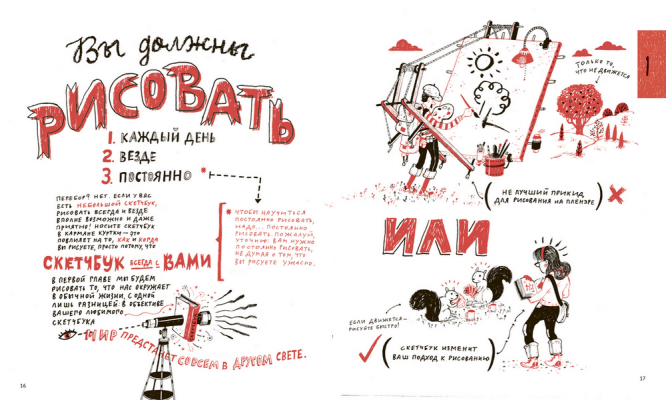 Вы должны
РИСОВАТЬ
1. КАЖДЫЙ ДЕНЬ
2. ВЕЗДЕ
3. ПОСТОЯННО *
ПЕРЕБОР? НЕТ. ЕСЛИ У ВАС
ЕСТЬ НЕБОЛЬШОЙ СКЕТЧБУК,
РИСОВАТЬ ВСЕГДА И ВЕЗДЕ
ВПОЛНЕ ВОЗМОЖНО И ДАЖЕ
ПРИЯТНО! НОСИТЕ СКЕТЧБУК
В КАРМАНЕ КУРТКИ — ЭТО
ПОВЛИЯЕТ НА ТО, КАК И КОГДА
ВЫ РИСУЕТЕ, ПРОСТО ПОТОМУ, ЧТО
* ЧТОБЫ НАУЧИТЬСЯ
ПОСТОЯННО РИСОВАТЬ,
НАДО... ПОСТОЯННО
РИСОВАТЬ. ПОЖАЛУЙ,
УТОЧНЮ: ВАМ НУЖНО
ПОСТОЯННО РИСОВАТЬ,
НЕ ДУМАЯ О ТОМ, ЧТО
ВЫ РИСУЕТЕ УЖАСНО.
СКЕТЧБУК ВСЕГДА С ВАМИ
В ПЕРВОЙ ГЛАВЕ МЫ БУДЕМ
РИСОВАТЬ ТО, ЧТО НАС ОКРУЖАЕТ
В ОБЫЧНОЙ ЖИЗНИ, С ОДНОЙ
ЛИШЬ РАЗНИЦЕЙ: В ОБЪЕКТИВЕ
ВАШЕГО ЛЮБИМОГО
СКЕТЧБУКА
МИР ПРЕДСТАНЕТ СОВСЕМ В ДРУГОМ СВЕТЕ.
16
1
ТОЛЬКО ТО,
ЧТО НЕ ДВИЖЕТСЯ
НЕ ЛУЧШИЙ ПРИКИД
ДЛЯ РИСОВАНИЯ НА ПЛЕНЭРЕ
ИЛИ
ЕСЛИ ДВИЖЕТСЯ—
РИСУЕТЕ БЫСТРО!
СКЕТЧБУК ИЗМЕНИТ
ВАШ ПОДХОД К РИСОВАНИЮ
17